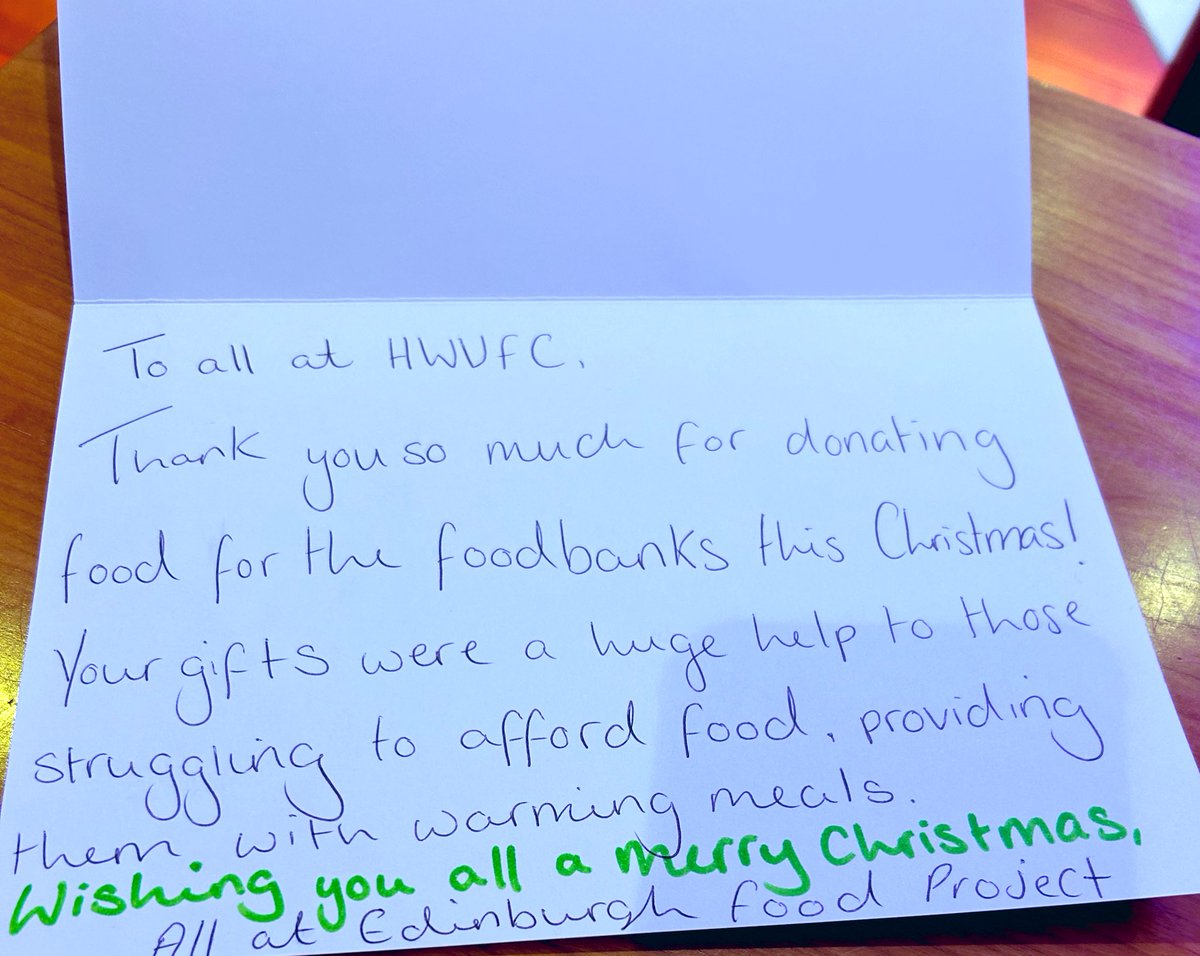 To all at HWUFC,
Thank you so much for donating
food for the foodbanks this Christmas!
Your gifts were a huge help to those
struggling to afford food, providing
them with warming meals.
Wishing you all a merry Christmas,
All at Edinburgh Food Project